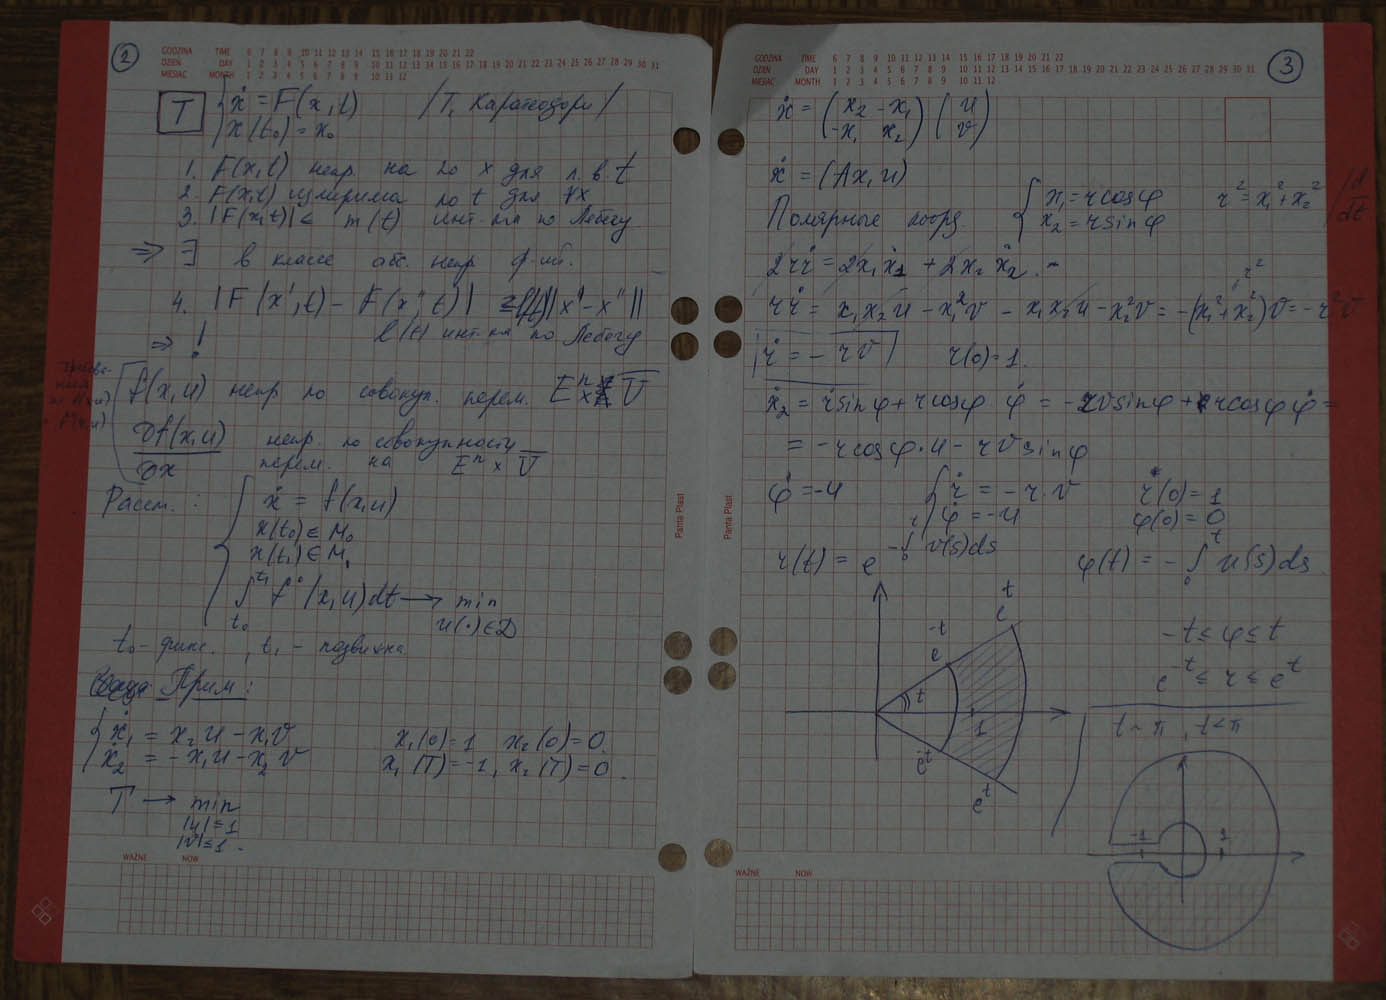 2
GODZINA TIME 6 7 8 9 10 11 12 13 14 15 16 17 18 19 20 21 22
DZIEŃ DAY 1 2 3 4 5 6 7 8 9 10 11 12 13 14 15 16 17 18 19 20 21 22 23 24 25 26 27 28 29 30 31
MIESIĄC MONTH 1 2 3 4 5 6 7 8 9 10 11 12
T { ẋ = F(x,t) /Т. Каратеодори/
x(t₀) = x₀
1. F(x,t) непр. на по x для п.в. t
2. F(x,t) измерима по t для ∀x
3. |F(x,t)| ≤ m(t) инт-ма по Лебегу
⇒ ∃ в классе абс. непр. ф-ий.
4. |F(x',t) - F(x'',t)| ≤ l(t)||x' - x''||
l(t) инт-ма по Лебегу
⇒ !
f(x,u) непр по совокуп. перем. Eⁿ × U̅
∂f(x,u)/∂x непр. по совокупности
перем. на Eⁿ × U̅
Рассм.: { ẋ = f(x,u)
x(t₀) ∈ M₀
x(t₁) ∈ M₁
∫ₜ₀ᵗ¹ f⁰(x,u)dt → min
u(·) ∈ D
t₀ - фикс., t₁ - подвижна
Прим:
{ ẋ₁ = x₂u - x₁v x₁(0) = 1 x₂(0) = 0.
ẋ₂ = -x₁u - x₂v x₁(T) = -1, x₂(T) = 0.
T → min
|u| ≤ 1
|v| ≤ 1.
WAŻNE NOW
Panta Plast
3
GODZINA TIME 6 7 8 9 10 11 12 13 14 15 16 17 18 19 20 21 22
DZIEŃ DAY 1 2 3 4 5 6 7 8 9 10 11 12 13 14 15 16 17 18 19 20 21 22 23 24 25 26 27 28 29 30 31
MIESIĄC MONTH 1 2 3 4 5 6 7 8 9 10 11 12
ẋ = (x₂ -x₁ ; -x₁ x₂) (u ; v)
ẋ = (Ax, u)
Полярные коорд. { x₁ = r cos φ r² = x₁² + x₂² | d/dt
x₂ = r sin φ
2rṙ = 2x₁ẋ₁ + 2x₂ẋ₂.
rṙ = x₁x₂u - x₁²v - x₁x₂u - x₂²v = -(x₁² + x₂²)v = -r²v
r²
ṙ = -rv r(0) = 1.
ẋ₂ = ṙ sin φ + r cos φ φ̇ = -rv sin φ + r cos φ φ̇ =
= -r cos φ · u - rv sin φ
φ̇ = -u { ṙ = -r·v r(0) = 1
φ̇ = -u φ(0) = 0
r(t) = e^(-∫₀ᵗ v(s)ds) φ(t) = -∫₀ᵗ u(s)ds.
e⁻ᵗ eᵗ
t 1
e⁻ᵗ eᵗ
-t ≤ φ ≤ t
e⁻ᵗ ≤ r ≤ eᵗ
t ~ π, t < π
-1 1
WAŻNE NOW
Panta Plast